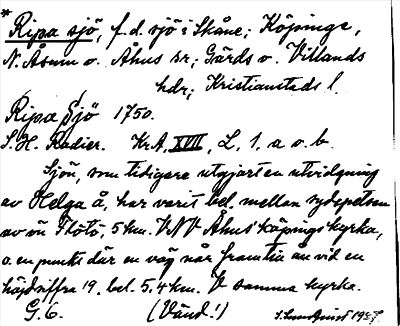 * Ripa sjö, f.d. sjö i Skåne; Köpinge,
N. Åsum o. Åhus sr; Gärds o. Villands
hdr; Kristianstads l.
Ripa Sjö 1750.
S. H. Radier. KrA, XVII, L, 1, a o. b.
Sjön, som tidigare utgjort en utvidgning
av Helga å, har varit bel. mellan sydspetsen
av ön Flötö, 5 km. VNV Åhus' köpings kyrka,
o. en punkt där en väg når fram till ån vid en
höjdsiffra 19. bel. 5,4 km. V samma kyrka.
G. 6. (Vänd!) 1957.